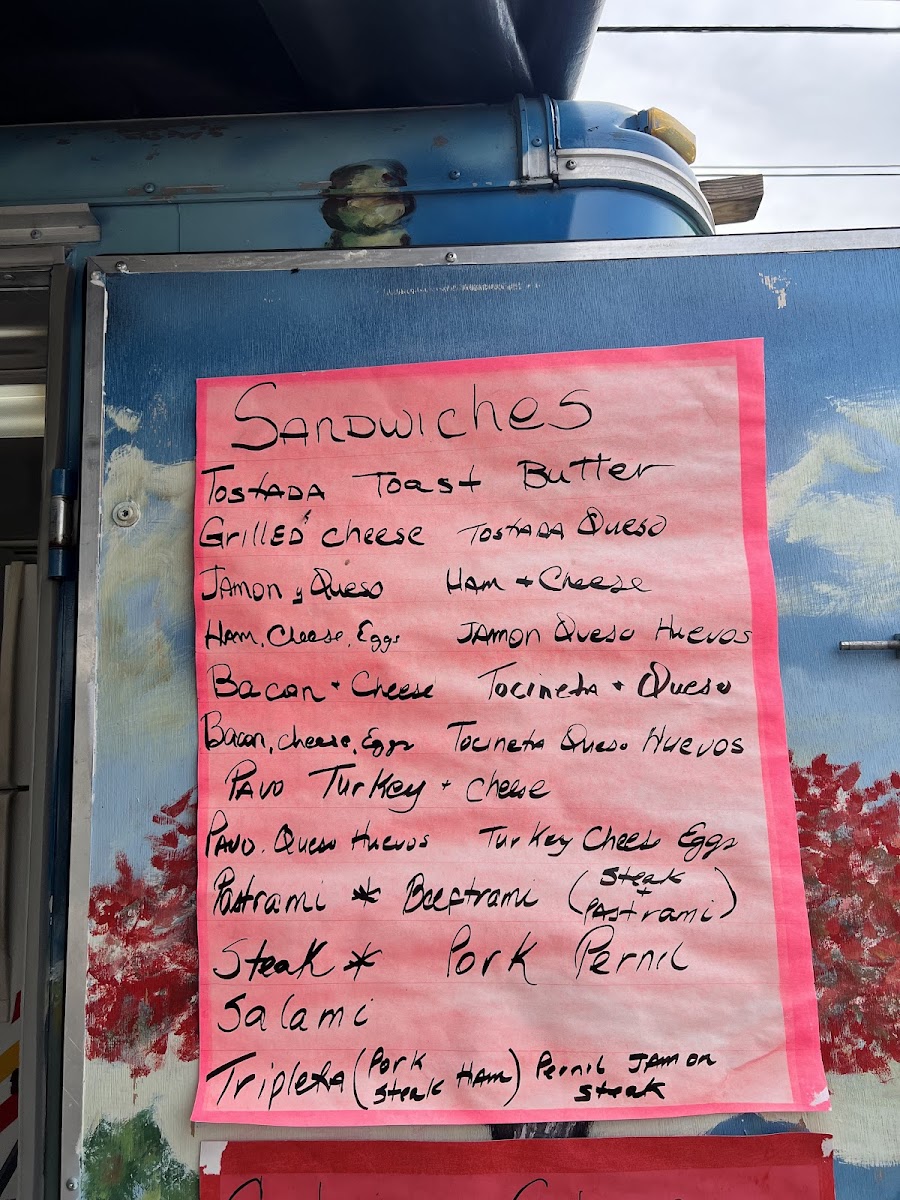 SANDWiches
TOSTADA Toast Butter
GrillED cheese TOSTADA Queso
JAMON y Queso HAM + Cheese
HAM, Cheese, Eggs JAMON Queso Huevos
Bacon + Cheese Tocineta + Queso
Bacon, cheese, Eggs Tocineta Queso Huevos
PAVO Turkey + cheese
PAVO. Queso Huevos Turkey Chees Eggs
Pastrami * Beeftrami (Steak + PAstrami)
Steak * Pork Pernil
Salami
Tripleta (Pork Steak HAM) Pernil JAMON Steak